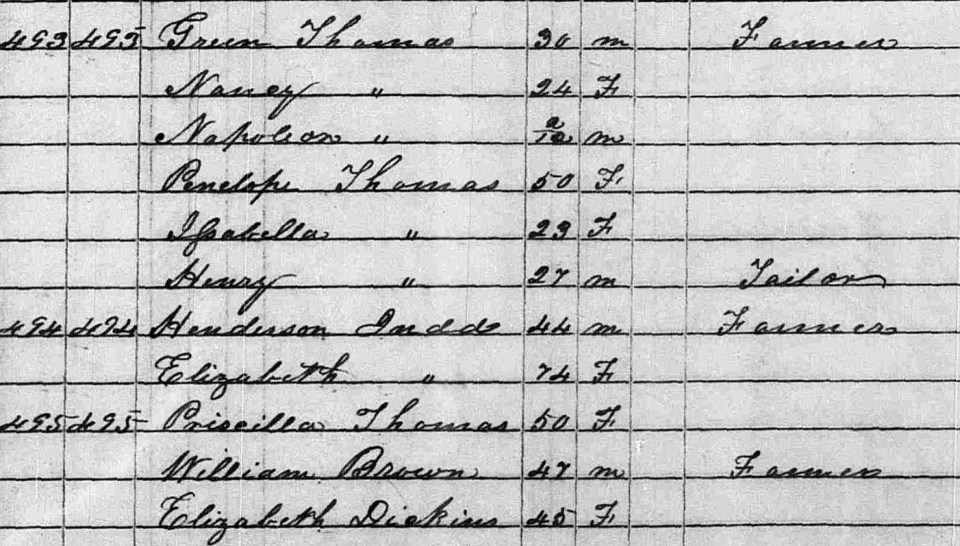 493 493 Green Thomas 30 m Farmer
Nancy " 24 F
Napoleon " m
Penelope Thomas 50 F
Issabella " 23 F
Henry " 27 m Tailor
494 494 Henderson Judd 44 m Farmer
Elizabeth " 74 F
495 495 Priscilla Thomas 50 F
William Brown 47 m Farmer
Elizabeth Dickins 45 F